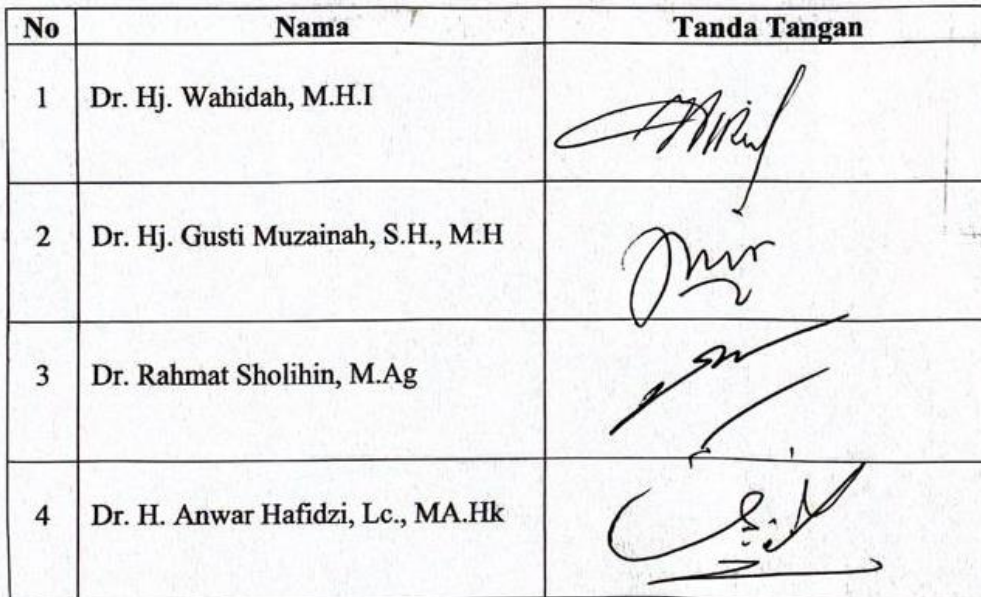 No Nama Tanda Tangan
1 Dr. Hj. Wahidah, M.H.I
2 Dr. Hj. Gusti Muzainah, S.H., M.H
3 Dr. Rahmat Sholihin, M.Ag
4 Dr. H. Anwar Hafidzi, Lc., MA.Hk